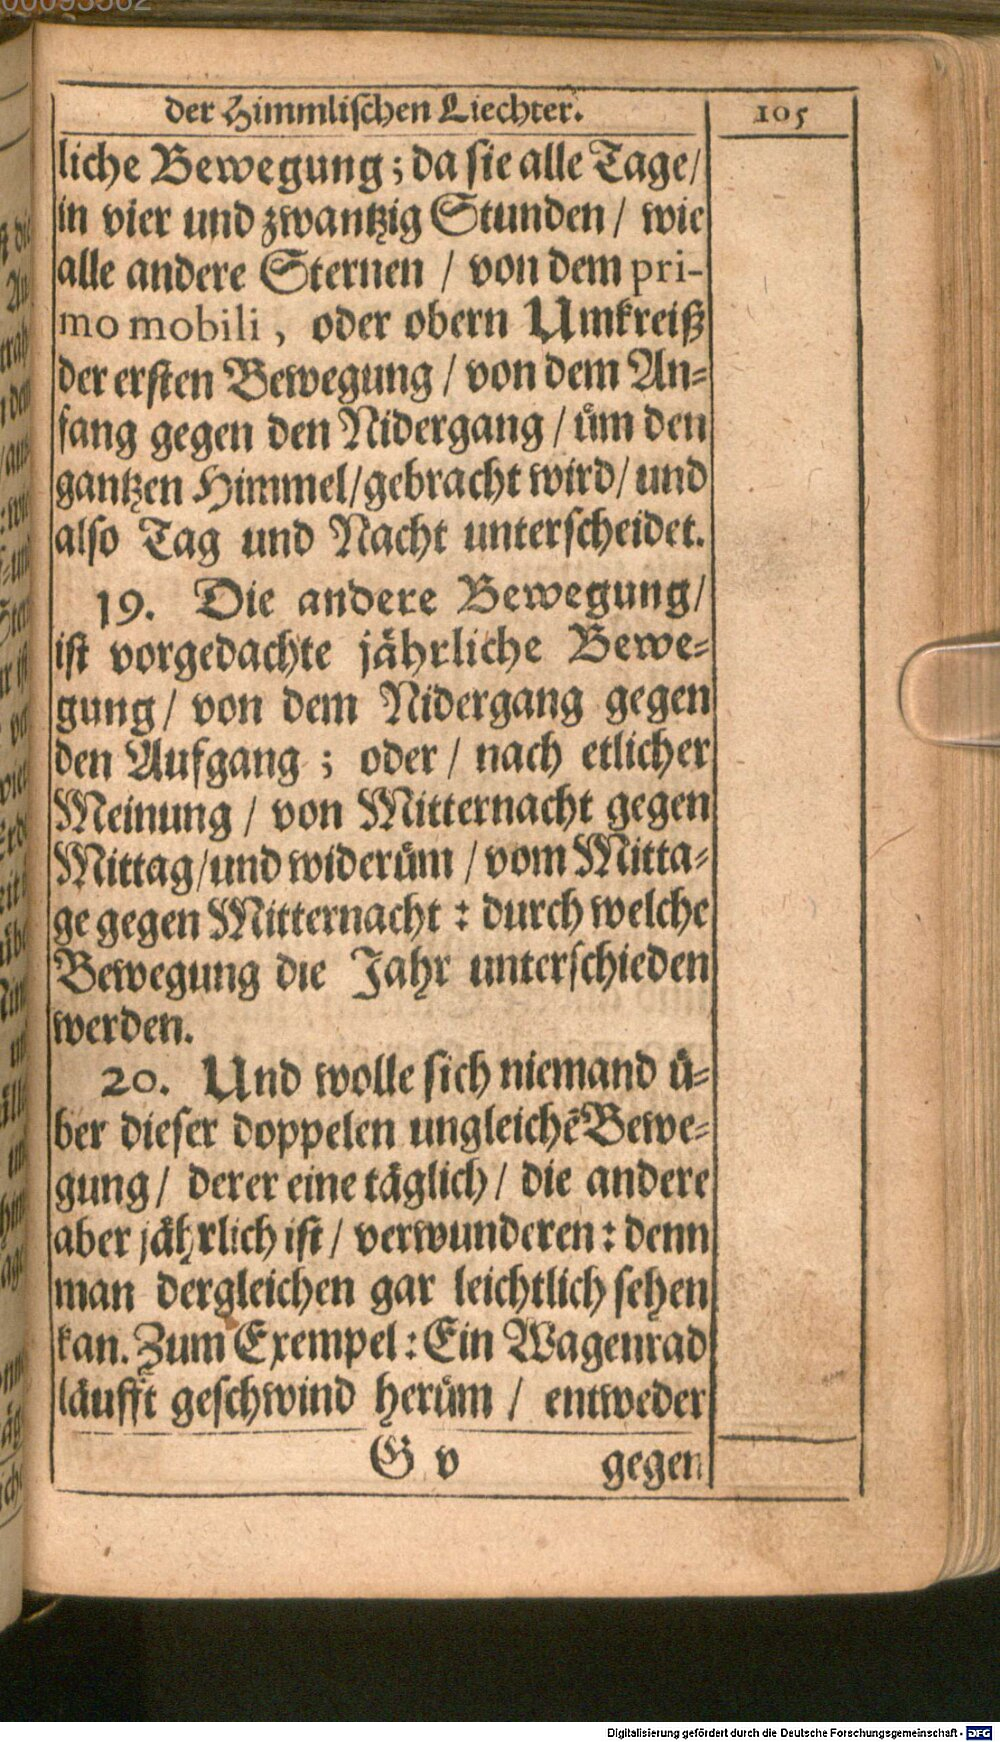 der Himmlischen Liechter. 105
liche Bewegung; da sie alle Tage/
in vier und zwantzig Stunden / wie
alle andere Sternen / von dem pri-
mo mobili, oder obern Umkreiß
der ersten Bewegung / von dem An-
fang gegen den Nidergang / üm den
gantzen Himmel/gebracht wird/ und
also Tag und Nacht unterscheidet.
19. Die andere Bewegung/
ist vorgedachte jährliche Bewe-
gung / von dem Nidergang gegen
den Aufgang ; oder / nach etlicher
Meinung / von Mitternacht gegen
Mittag/und widerüm / vom Mitta-
ge gegen Mitternacht : durch welche
Bewegung die Jahr unterschieden
werden.
20. Und wolle sich niemand ü-
ber dieser doppelen ungleichē Bewe-
gung / derer eine täglich / die andere
aber jährlich ist / verwunderen : denn
man dergleichen gar leichtlich sehen
kan. Zum Exempel : Ein Wagenrad
läufft geschwind herüm / entweder
G v gegen
Digitalisierung gefördert durch die Deutsche Forschungsgemeinschaft - DFG